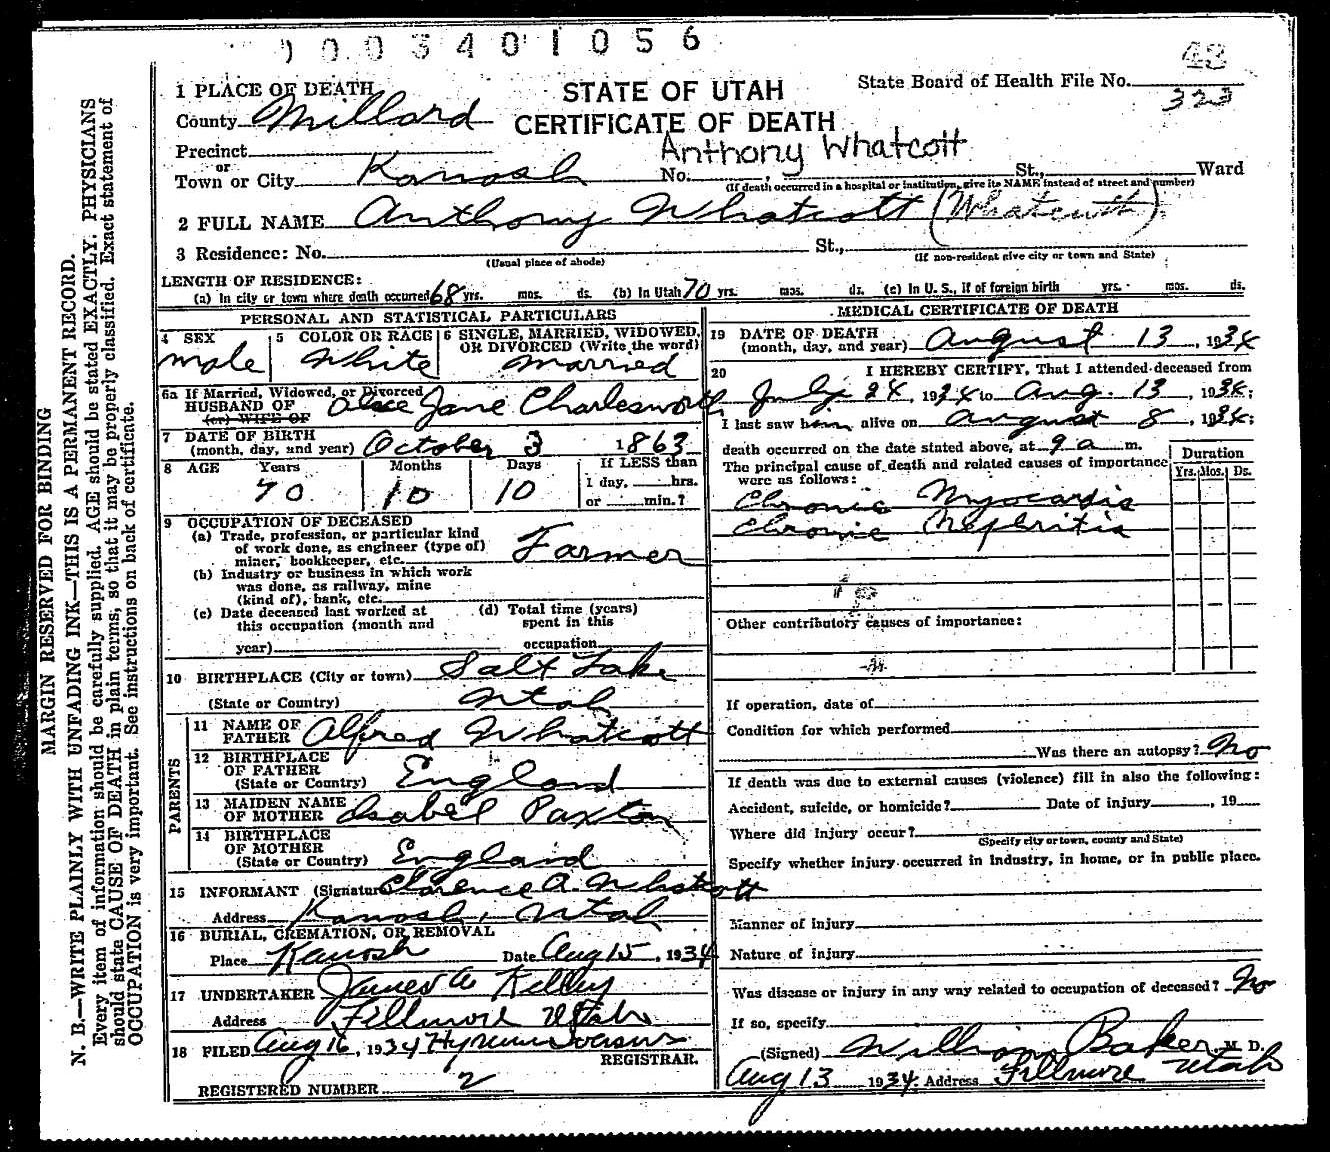 0003401056
48
1 PLACE OF DEATH
STATE OF UTAH
State Board of Health File No. 323
County Millard
CERTIFICATE OF DEATH
Precinct
Anthony Whatcott
or
Town or City Kanosh No. , St., Ward
(If death occurred in a hospital or institution, give its NAME instead of street and number)
2 FULL NAME Anthony Whatcott (Whatcutt)
3 Residence: No. St.,
(Usual place of abode) (If non-resident give city or town and State)
LENGTH OF RESIDENCE:
(a) In city or town where death occurred 68 yrs. mos. ds. (b) In Utah 70 yrs. mos. ds. (c) In U. S., if of foreign birth yrs. mos. ds.
PERSONAL AND STATISTICAL PARTICULARS
4 SEX male
5 COLOR OR RACE White
6 SINGLE, MARRIED, WIDOWED, OR DIVORCED (Write the word) married
6a If Married, Widowed, or Divorced
HUSBAND OF
(or) WIFE OF
Jane Charlesworth
7 DATE OF BIRTH
(month, day, and year) October 3 1863
8 AGE Years Months Days If LESS than
70 10 10 1 day, hrs.
or min.?
9 OCCUPATION OF DECEASED
(a) Trade, profession, or particular kind
of work done, as engineer (type of)
miner, bookkeeper, etc. Farmer
(b) Industry or business in which work
was done, as railway, mine
(kind of), bank, etc.
(c) Date deceased last worked at
this occupation (month and
year)
(d) Total time (years)
spent in this
occupation
10 BIRTHPLACE (City or town) Salt Lake
(State or Country) Utah
PARENTS
11 NAME OF
FATHER Alfred Whatcott
12 BIRTHPLACE
OF FATHER
(State or Country) England
13 MAIDEN NAME
OF MOTHER Isabel Paxton
14 BIRTHPLACE
OF MOTHER
(State or Country) England
15 INFORMANT (Signature) Clarence A. Whatcott
Address Kanosh, Utah
16 BURIAL, CREMATION, OR REMOVAL
Place Kanosh Date Aug 15, 1934
17 UNDERTAKER James A Kelly
Address Fillmore Utah
18 FILED Aug 16, 1934 Hyrum Iverson
REGISTRAR.
REGISTERED NUMBER 2
MEDICAL CERTIFICATE OF DEATH
19 DATE OF DEATH
(month, day, and year) August 13, 1934
20 I HEREBY CERTIFY, That I attended deceased from
July 24, 1934 to Aug. 13, 1934;
I last saw him alive on August 8, 1934;
death occurred on the date stated above, at 9 a m.
The principal cause of death and related causes of importance
were as follows:
Duration
Yrs. Mos. Ds.
Chronic Myocardis
Chronic Nephritis
Other contributory causes of importance:
If operation, date of
Condition for which performed
Was there an autopsy? No
If death was due to external causes (violence) fill in also the following:
Accident, suicide, or homicide? Date of injury , 19
Where did injury occur?
(Specify city or town, county and State)
Specify whether injury occurred in industry, in home, or in public place.
Manner of injury
Nature of injury
Was disease or injury in any way related to occupation of deceased? No
If so, specify
(Signed) William Baker M. D.
Aug 13 1934 Address Fillmore Utah
MARGIN RESERVED FOR BINDING
N. B.—WRITE PLAINLY WITH UNFADING INK—THIS IS A PERMANENT RECORD.
Every item of information should be carefully supplied. AGE should be stated EXACTLY. PHYSICIANS
should state CAUSE OF DEATH in plain terms, so that it may be properly classified. Exact statement of
OCCUPATION is very important. See instructions on back of certificate.